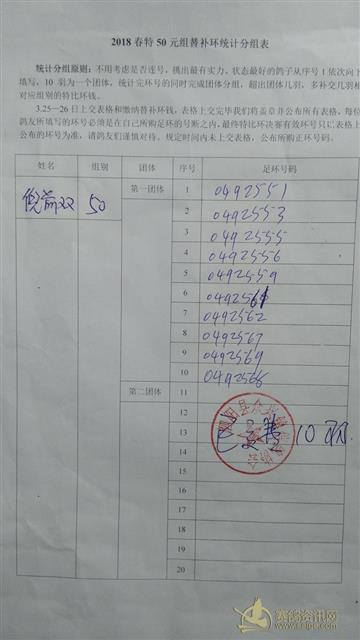 2018 春特 50 元组替补环统计分组表
统计分组原则：不用考虑是否连号，挑出最有实力、状态最好的鸽子从序号 1 依次向下
填写，10 羽为一个团体，统计完环号的同时完成团体分组，超出团体几羽，多补交几羽相
对应组别的特比环钱。
3.25—26 日上交表格和缴纳替补环钱，表格上交完毕我们将盖章并公布所有表格，每位
鸽友所填写的环号必须是在自己所购足环的号断之内，最终特比环决赛有效环号只以表格上
公布的环号为准，请鸽友们谨慎对待。规定时间内未上交表格，公布所购正环号码。
姓名 组别 团体 序号 足环号码
倪前双 50 第一团体 1 0492551
2 0492553
3 0492555
4 0492556
5 0492559
6 0492561
7 0492562
8 0492567
9 0492569
10 0492568
第二团体 11
12
13 已交 10羽
14
15
16
17
18
19
20
赛鸽资讯网